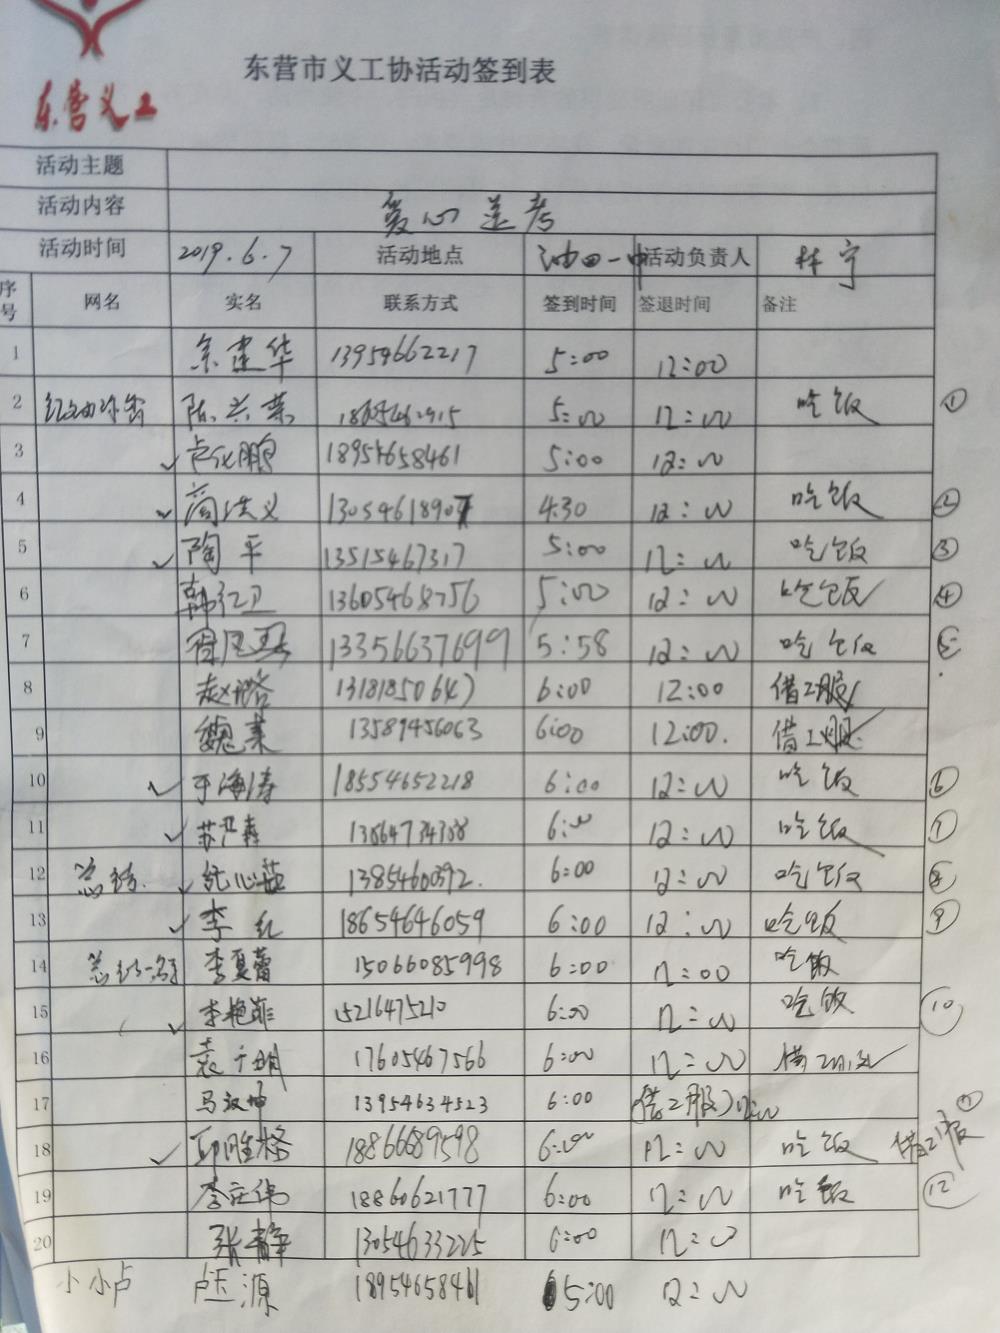 东营义工
东营市义工协活动签到表
活动主题
活动内容 爱心送考
活动时间 2019.6.7 活动地点 油田一中 活动负责人 林宁
序号 网名 实名 联系方式 签到时间 签退时间 备注
1 宗建华 13954662217 5:00 12:00
2 陈兰荣 5:00 12:00 吃饭 ①
3 ✓ 卢化鹏 18954658461 5:00 12:00
4 ✓ 商洪义 13054618907 4:30 12:00 吃饭 ②
5 ✓ 陶平 13515467317 5:00 12:00 吃饭 ③
6 韩红卫 13605468756 5:00 12:00 吃饭 ④
7 13356637699 5:58 12:00 吃饭 ⑤
8 13181850647 6:00 12:00 借工服
9 魏素 13589456063 6:00 12:00. 借工服
10 ✓ 于海涛 18554652218 6:00 12:00 吃饭 ⑥
11 ✓ 6:00 12:00 吃饭 ⑦
12 ✓ 1385460392. 6:00 12:00 吃饭 ⑧
13 ✓ 李红 18654646059 6:00 12:00 吃饭 ⑨
14 李夏蕾 15066085998 6:00 12:00 吃饭
15 ✓ 李艳菲 15216475210 6:00 12:00 吃饭 ⑩
16 17605467566 6:00 12:00 借工服
17 马汉坤 13954634523 6:00 (借工服) 12:00
18 ✓ 邱胜格 18866689598 6:00 12:00 吃饭 借工服
19 李庄伟 18860621777 6:00 12:00 吃饭 ⑫
20 张静 13054633225 6:00 12:00
小小卢 卢玉源 18954658461 5:00 12:00